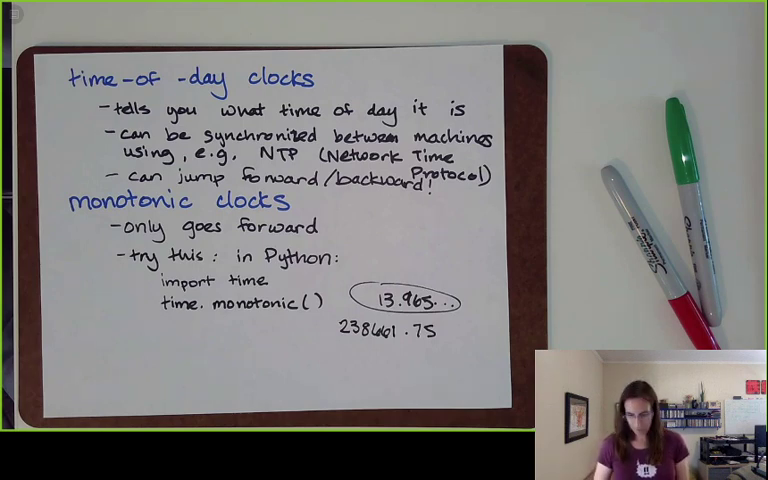 time-of-day clocks
- tells you what time of day it is
- can be synchronized between machines
using, e.g, NTP (Network Time
Protocol)
- can jump forward/backward!
monotonic clocks
- only goes forward
- try this: in Python:
import time
time.monotonic() 13.965...
238661.75
Sharpie
!!